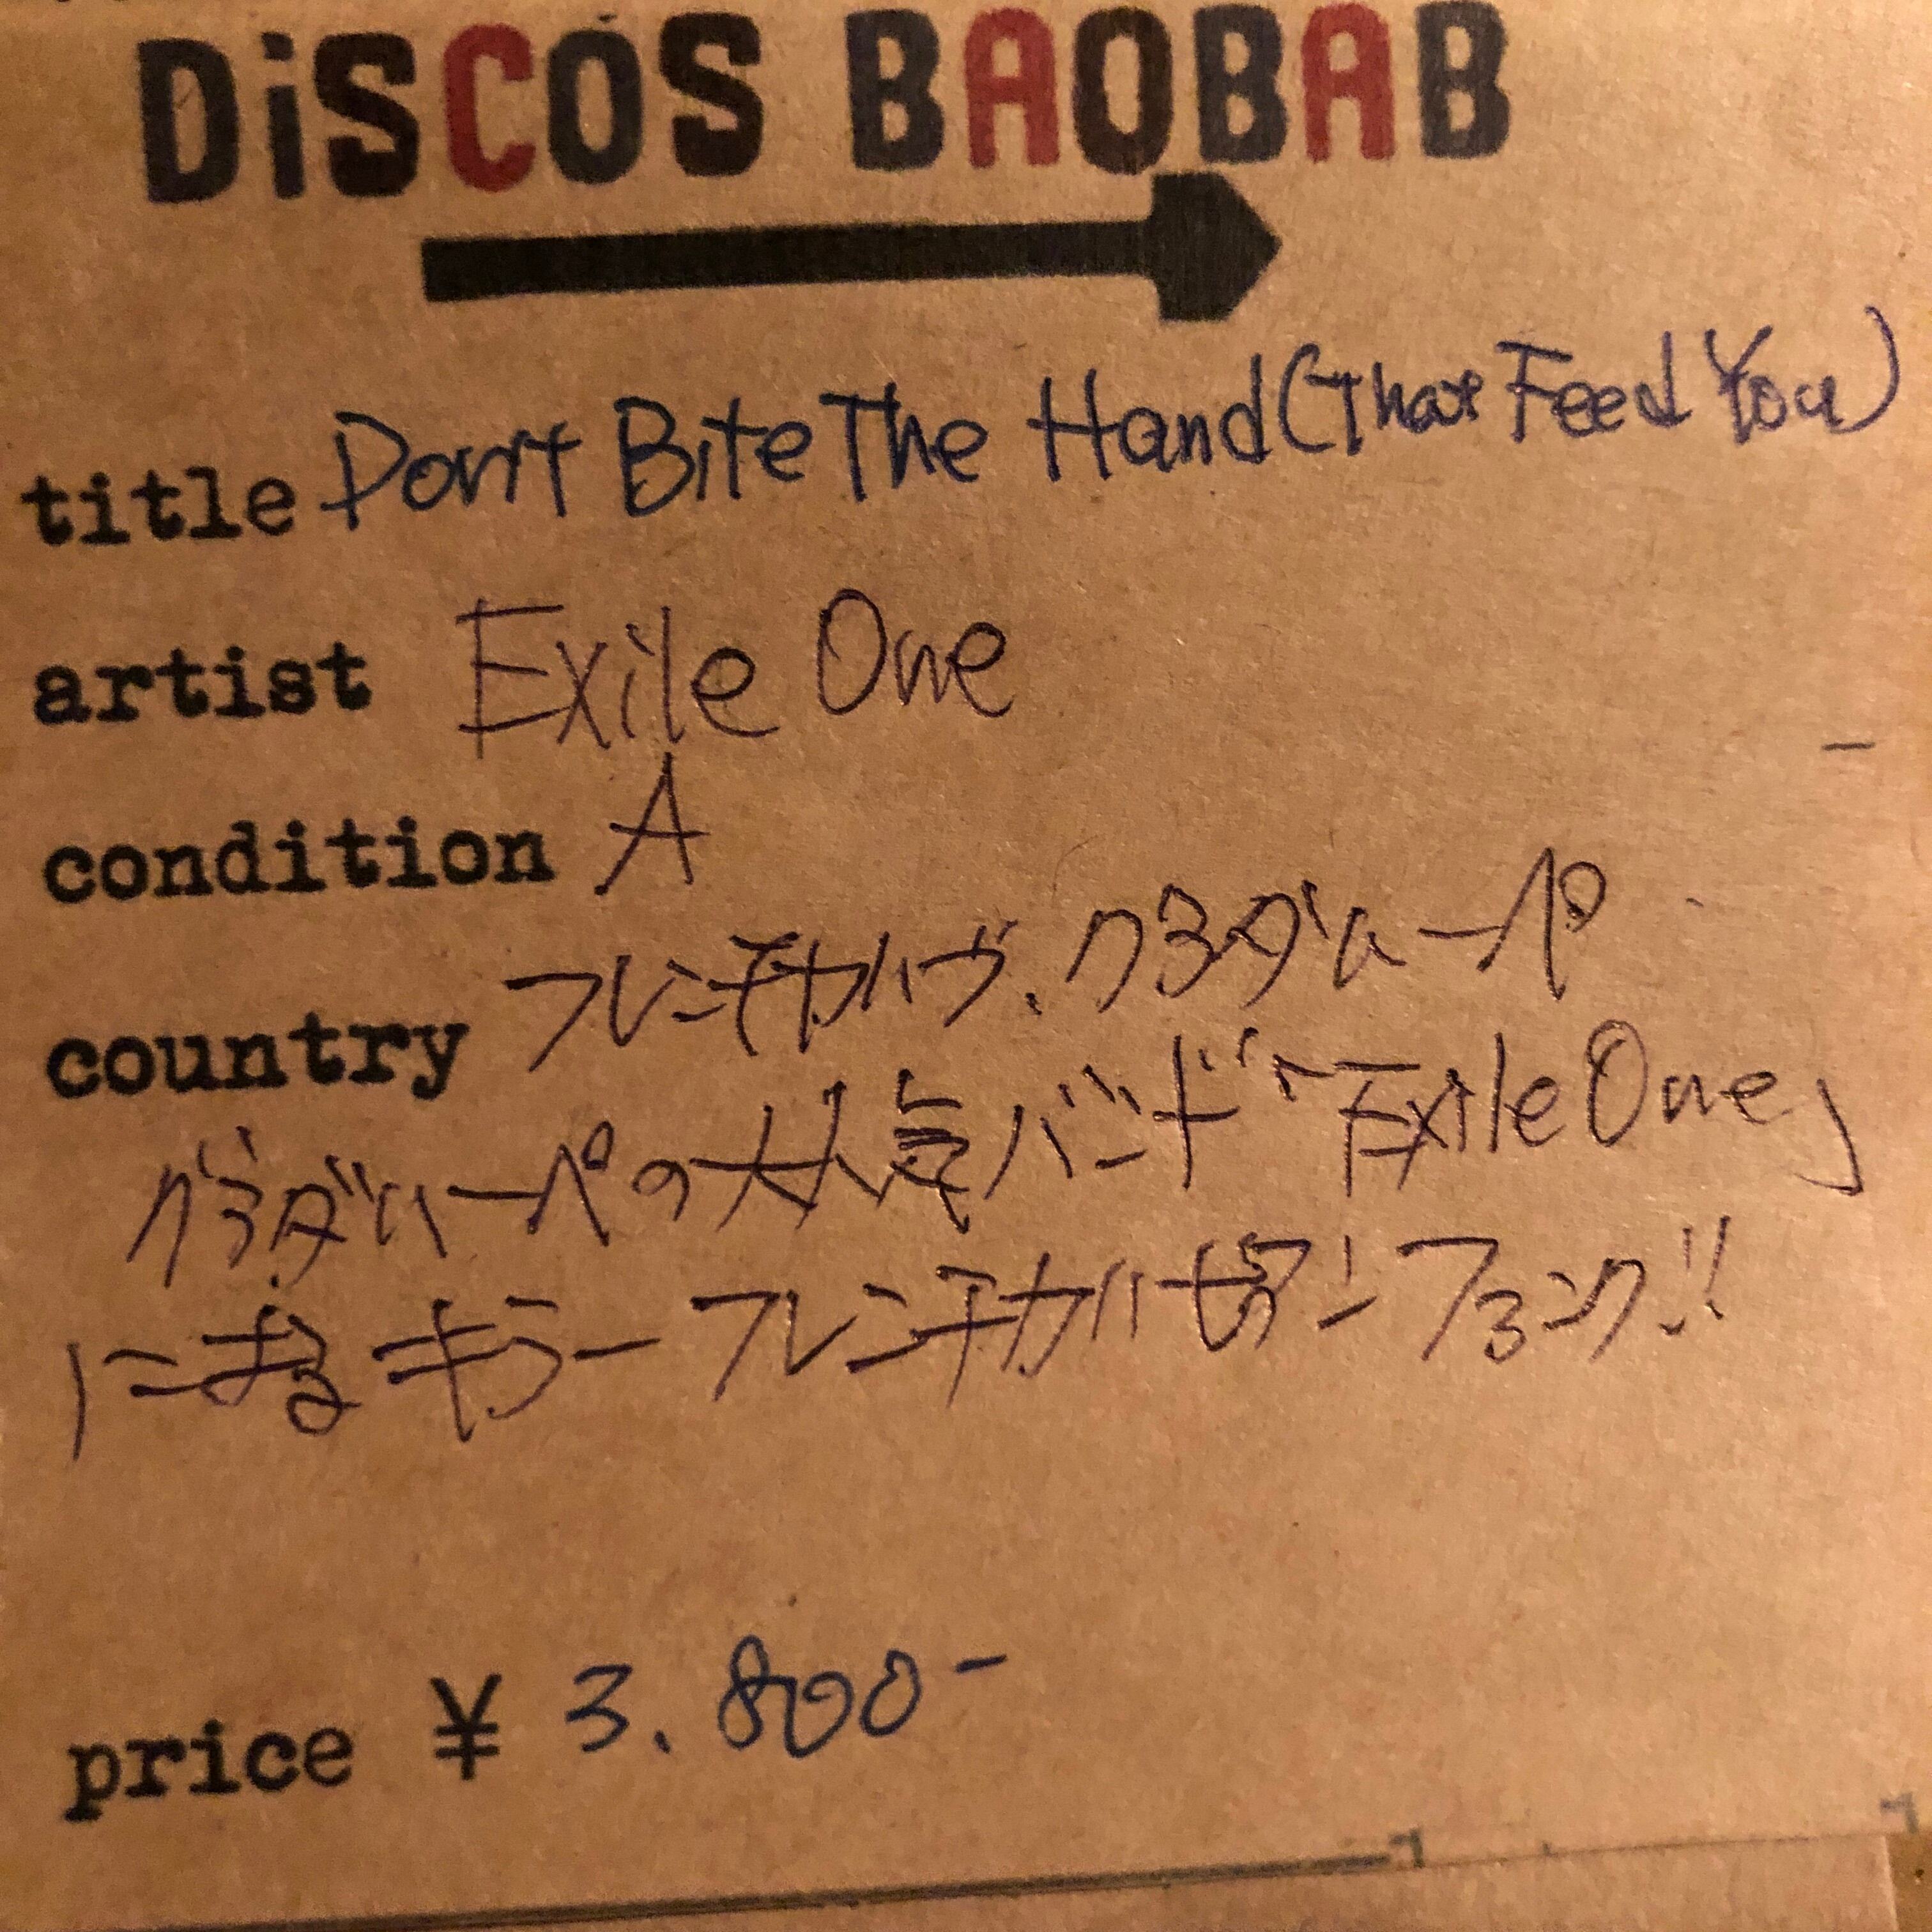 DiSCOS BAOBAB
title Don't Bite The Hand (That Feed You)
artist Exile One
condition A
country フレンチカリブ、グアダループ
グアダループの大人気バンド「Exile One」
による キラーフレンチカリビアンファンク!!
price ¥ 3.800-